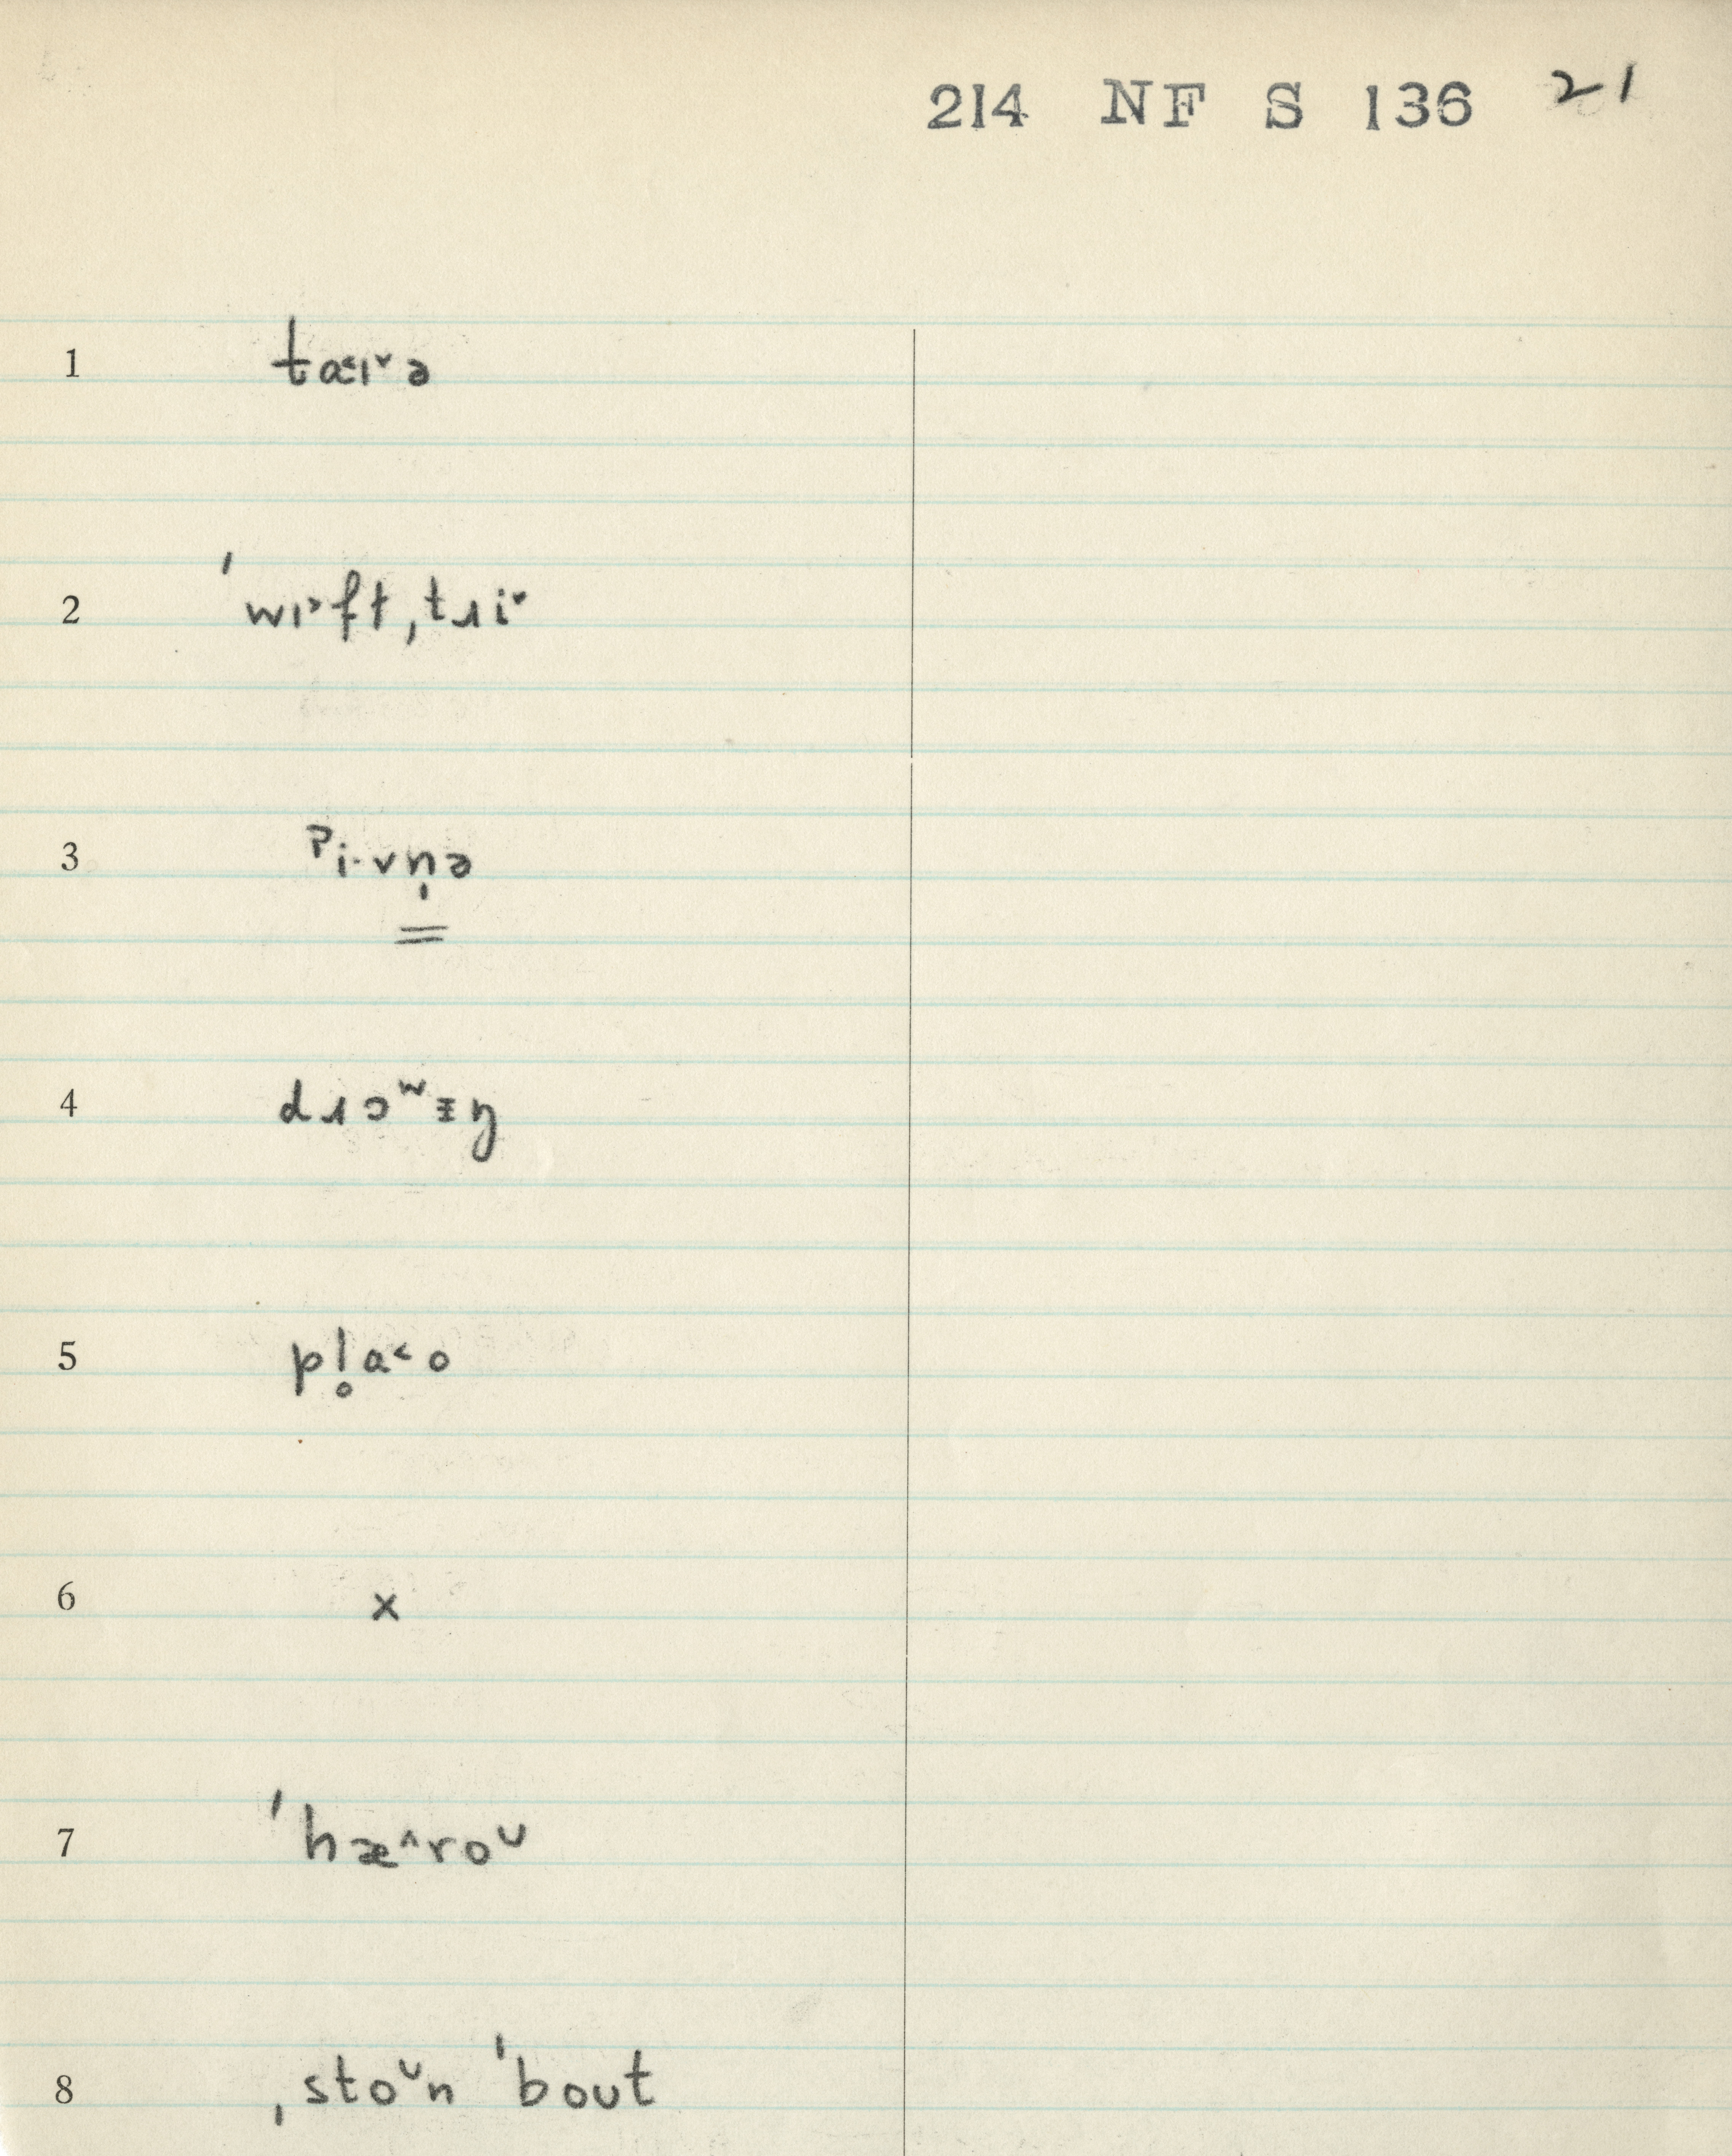 214 NF S 136 21
1 ta˂ɪ˅ə
2 ˈwɪ˃ft ˌtɹi˅
3 ᵖi·vn̩ə
4 dɹɔʷᵻŋ
5 pl̥a˂o
6 x
7 ˈhæ˄roᴜ
8 ˌstoᴜn ˈbout